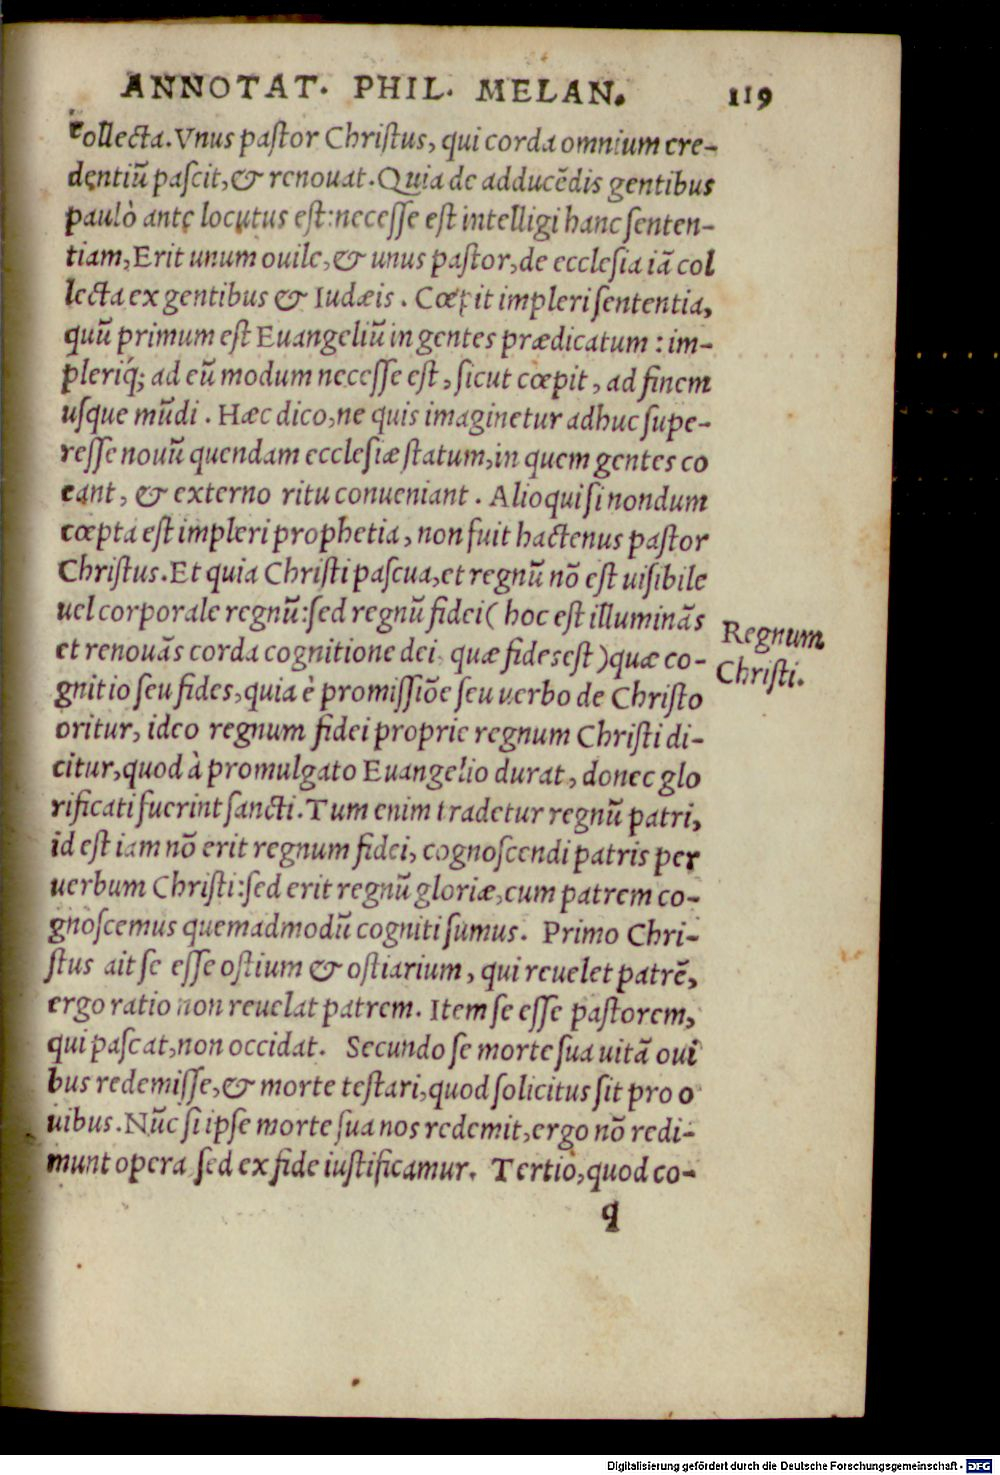 ANNOTAT. PHIL. MELAN. 119
collecta. Vnus paſtor Chriſtus, qui corda omnium cre-
dentiũ paſcit, & renouat. Quia de adducẽdis gentibus
paulò antę locutus eſt: neceſſe eſt intelligi hanc ſenten-
tiam, Erit unum ouile, & unus paſtor, de eccleſia iã col
lecta ex gentibus & Iudæis. Cœpit impleri ſententia,
quũ primum eſt Euangeliũ in gentes prædicatum: im-
pleriq́; ad eũ modum neceſſe eſt, ſicut cœpit, ad finem
uſque mũdi. Hæc dico, ne quis imaginetur adhuc ſupe-
reſſe nouũ quendam eccleſiæ ſtatum, in quem gentes co
eant, & externo ritu conueniant. Alioqui ſi nondum
cœpta eſt impleri prophetia, non fuit hactenus paſtor
Chriſtus. Et quia Chriſti paſcua, et regnũ nõ eſt uiſibile
uel corporale regnũ: ſed regnũ fidei (hoc eſt illuminãs
et renouãs corda cognitione dei, quæ fides eſt) quæ co-
gnitio ſeu fides, quia è promiſſiõe ſeu uerbo de Chriſto
oritur, ideo regnum fidei proprie regnum Chriſti di-
citur, quod à promulgato Euangelio durat, donec glo
rificati fuerint ſancti. Tum enim tradetur regnũ patri,
id eſt iam nõ erit regnum fidei, cognoſcendi patris per
uerbum Chriſti: ſed erit regnũ gloriæ, cum patrem co-
gnoſcemus quemadmodũ cogniti ſumus. Primo Chri-
ſtus ait ſe eſſe oſtium & oſtiarium, qui reuelet patrẽ,
ergo ratio non reuelat patrem. Item ſe eſſe paſtorem,
qui paſcat, non occidat. Secundo ſe morte ſua uitã oui
bus redemiſſe, & morte teſtari, quod ſolicitus ſit pro o
uibus. Nũc ſi ipſe morte ſua nos redemit, ergo nõ redi-
munt opera ſed ex fide iuſtificamur. Tertio, quod co-
Regnum
Chriſti.
q
Digitalisierung gefördert durch die Deutsche Forschungsgemeinschaft - DFG